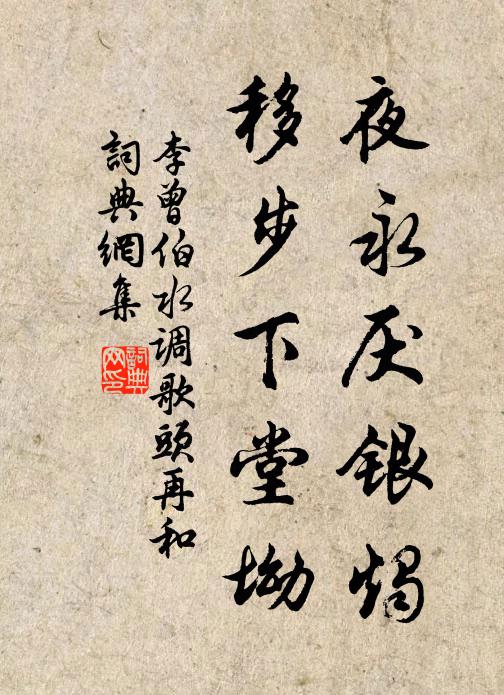 夜永厌银烛
移步下堂坳
李曾伯水调歌头再和
詞典網集
詞典网印